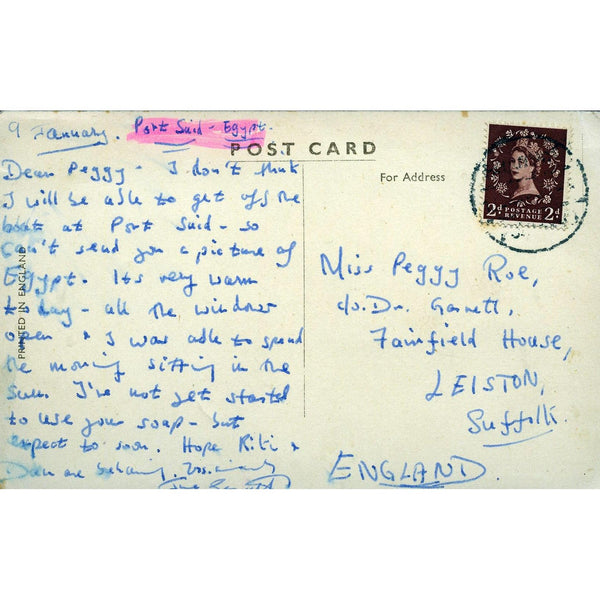 9 January. Port Said - Egypt.
POST CARD
Dear Peggy - I don't think
I will be able to get off the
boat at Port Said - so
can't send you a picture of
Egypt. Its very warm
today - all the windows
open & I was able to spend
the morning sitting in the
sun. I've not yet started
to use your soap - but
expect to soon. Hope Kiki &
are behaving.
PRINTED IN ENGLAND
For Address
2d POSTAGE 2d
REVENUE
Miss Peggy Roe,
c/o. Dr. Garrett,
Fairfield House,
LEISTON,
Suffolk.
ENGLAND.